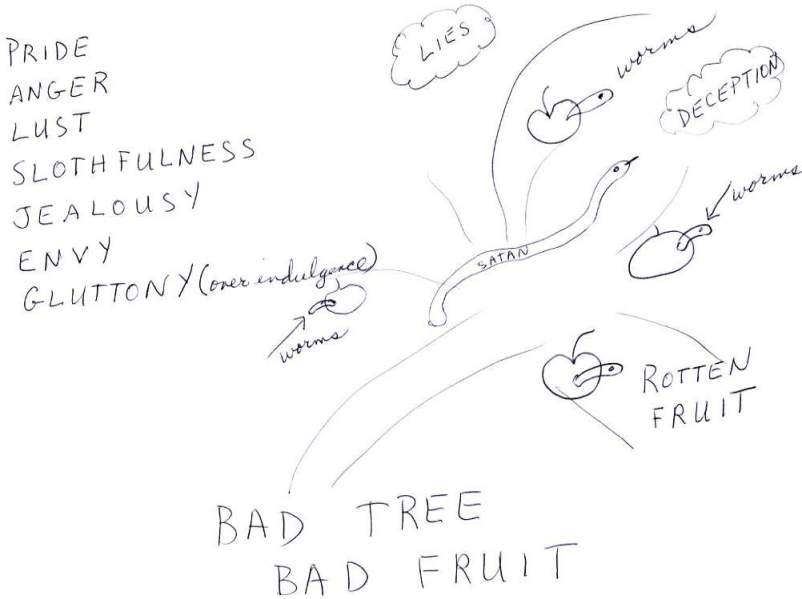 PRIDE
ANGER
LUST
SLOTHFULNESS
JEALOUSY
ENVY
GLUTTONY (over indulgence)
LIES
worms
DECEPTION
SATAN
worms
worms
ROTTEN
FRUIT
BAD TREE
BAD FRUIT